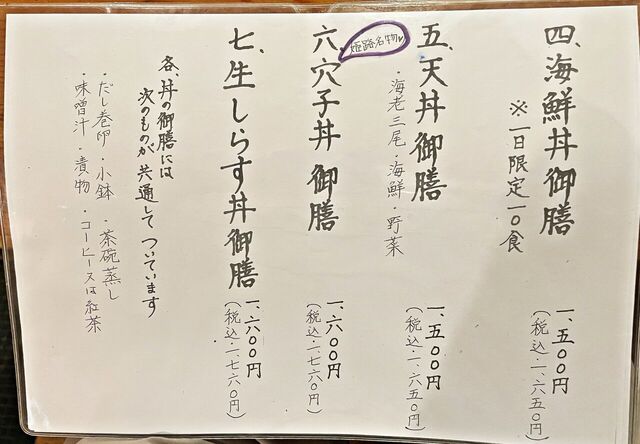 四、海鮮丼御膳
※一日限定一〇食
一、五〇〇円
(税込・一、六五〇円)
五、天丼御膳
・海老三尾・海鮮・野菜
一、五〇〇円
(税込・一、六五〇円)
姫路名物
六、穴子丼御膳
一、六〇〇円
(税込・一、七六〇円)
七、生しらす丼御膳
一、六〇〇円
(税込・一、七六〇円)
各、丼の御膳には
次のものが共通してついています
・だし巻卵・小鉢・茶碗蒸し
・味噌汁・漬物・コーヒー又は紅茶